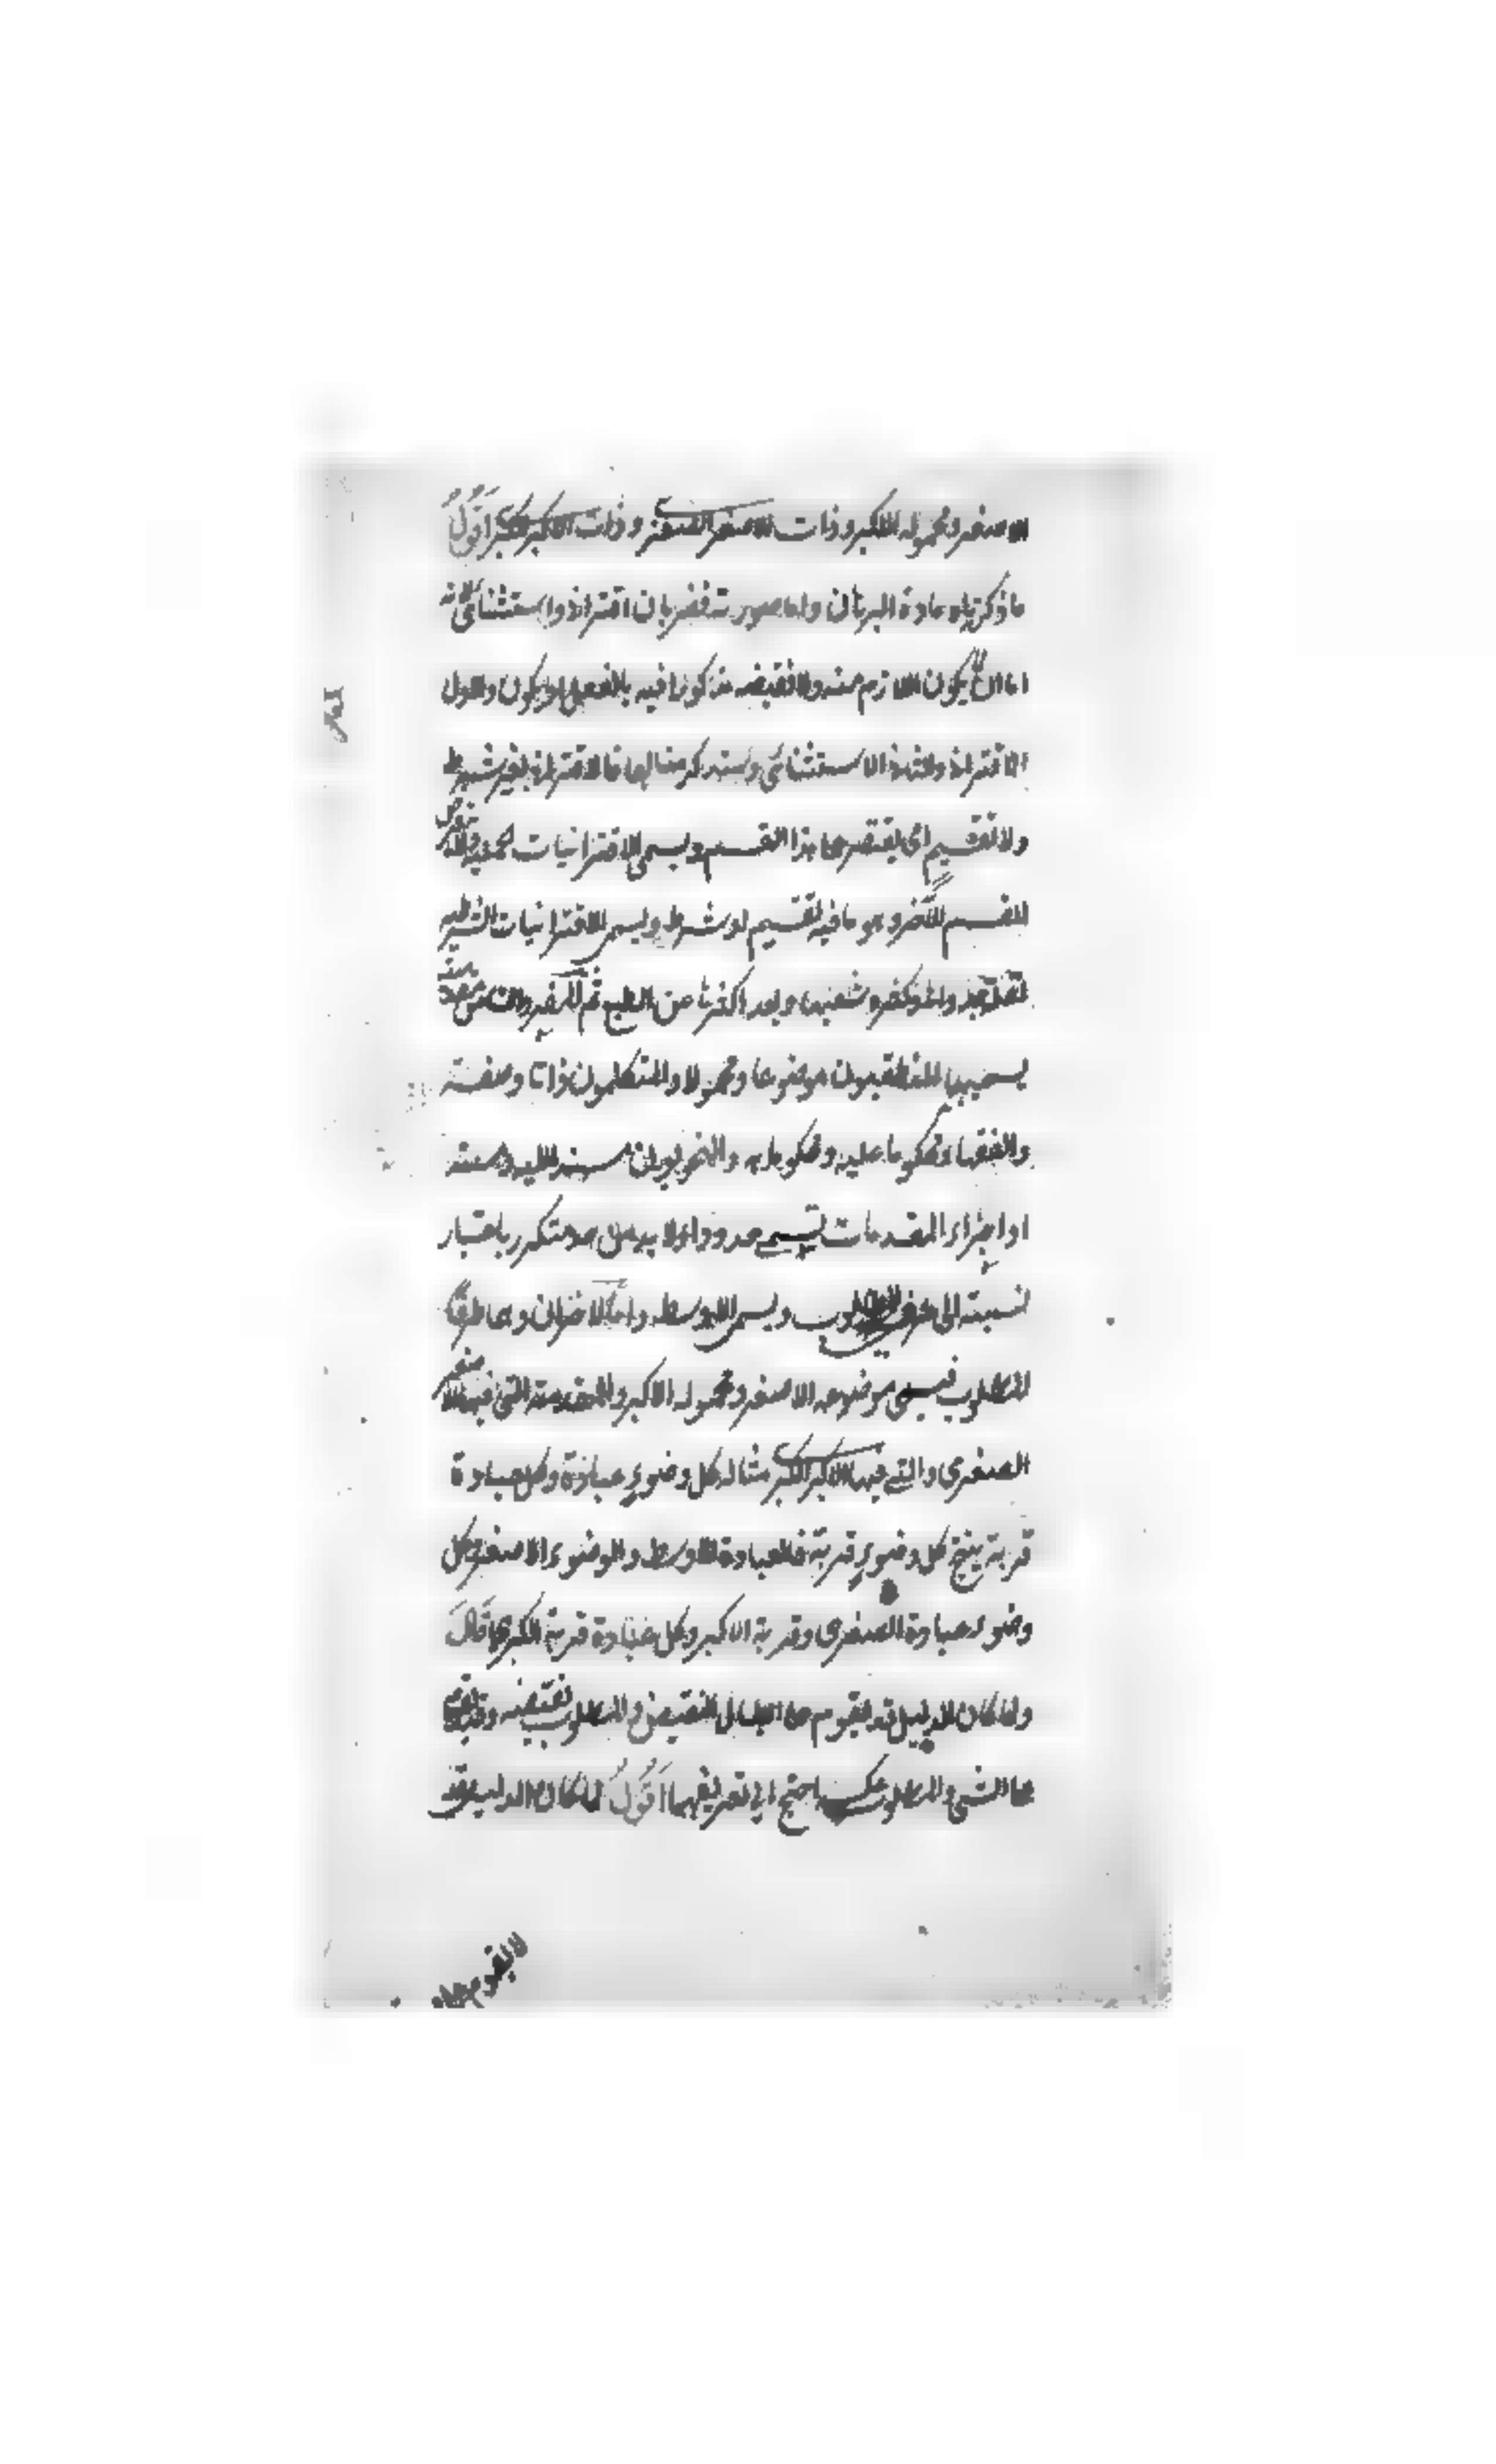 الاصغر ومحموله الاكبر وذات الاصغر الصغرى وذات الاكبر الكبرى اقول
ما ذكرناه مادة البرهان واما صورته فضربان اقتراني واستثنائي لانه
اما ان لا يكون اللازم منه ولا نقيضه مذكورا فيه بالفعل او يكون والاول
الاقتراني والثاني الاستثنائي وستدرك مثالهما فالاقتراني بغير شرط
ولا تقسيم اي يقتصر على هذا القسم ويسمى الاقترانيات الحملية
القسم الآخر وهو ما فيه تقسيم او شرط ويسمى الاقترانيات الشرطية
لقلة وبعد اكثرها من الطبع ثم المفردان من مقدمتيه
يسميهما المنطقيون موضوعا ومحمولا والمتكلمون ذاتا وصفة
والفقهاء محكوما عليه ومحكوما به والنحويون مسندا اليه ومسندا
اواجزاء المقدمات تسمى حدودا ولا بد من حد متكرر باعتبار
نسبته الى طرفي المطلوب ويسمى الاوسط واما الاخران وهما طرفا
المطلوب فيسمى موضوعه الاصغر ومحموله الاكبر والمقدمة التي فيها الاصغر
الصغرى والتي فيها الاكبر الكبرى مثاله كل وضوء عبادة وكل عبادة
قربة ينتج كل وضوء قربة فالعبادة الاوسط والوضوء الاصغر وكل
وضوء عبادة الصغرى وقربة الاكبر وكل عبادة قربة الكبرى قال
ولما كان الدليل قد يقوم على ابطال النقيض والمطلوب نقيضه وقد يقوم
على الشيء والمطلوب عكسه احتيج الى تعريفهما اقول لما كان الدليل قد
لا يقوم على